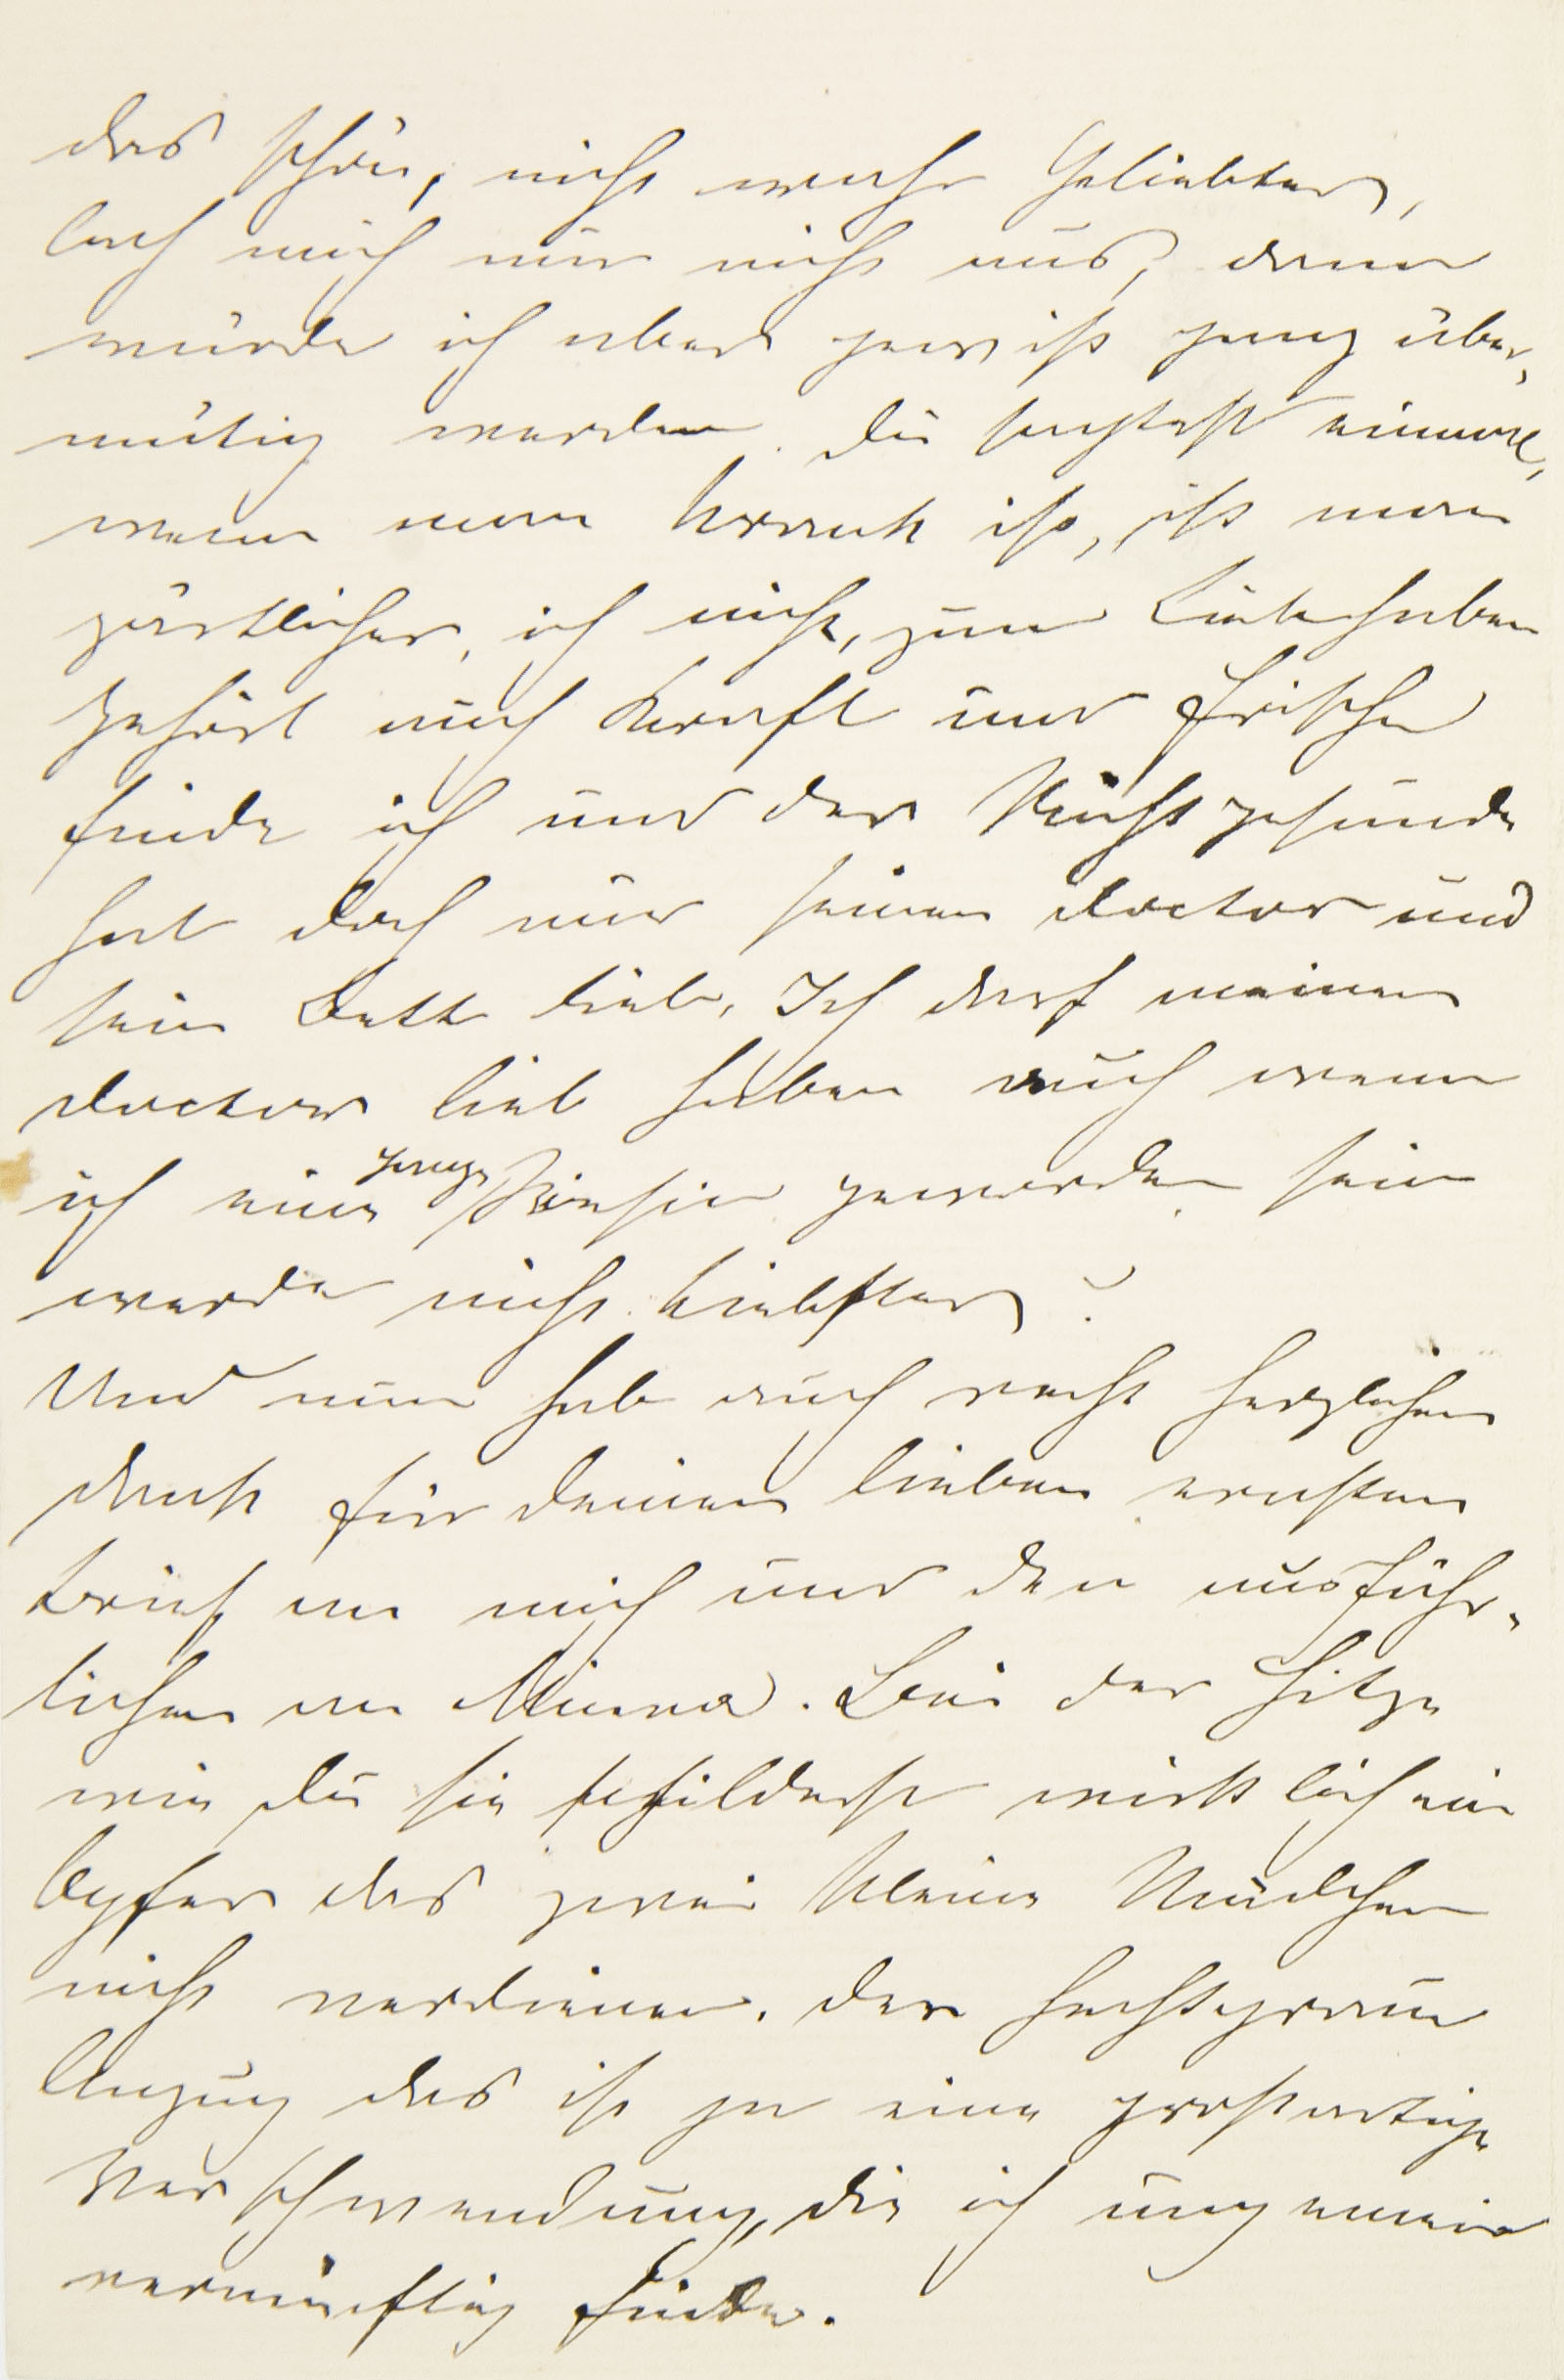 das schön, nicht wahr Geliebter,
lach mich nur nicht aus, dann
würde ich aber gewiß ganz über,
mütig werden. Du sagtest einmal,
wenn man krank ist, ist man
zärtlicher, ich nicht, zum Liebhaben
gehört auch Kraft und Frische
finde ich und der Nichtgesunde
hat doch nur seinen Doctor und
sein Bett lieb. Ich darf meinen
Doctor lieb haben auch wenn
ich eine ganze Riesin geworden sein
werde nicht Liebster?
Und nun hab auch recht herzlichen
Dank für Deinen lieben ernsten
Brief an mich und den ausführ-
lichen an Minna. Bei der Hitze
wie Du sie schilderst wirklich ein
Opfer das zwei kleine Mädchen
nicht verdienen. Der hechtgraue
Anzug das ist ja eine großartige
Verschwendung, die ich ungemein
vernünftig finde.